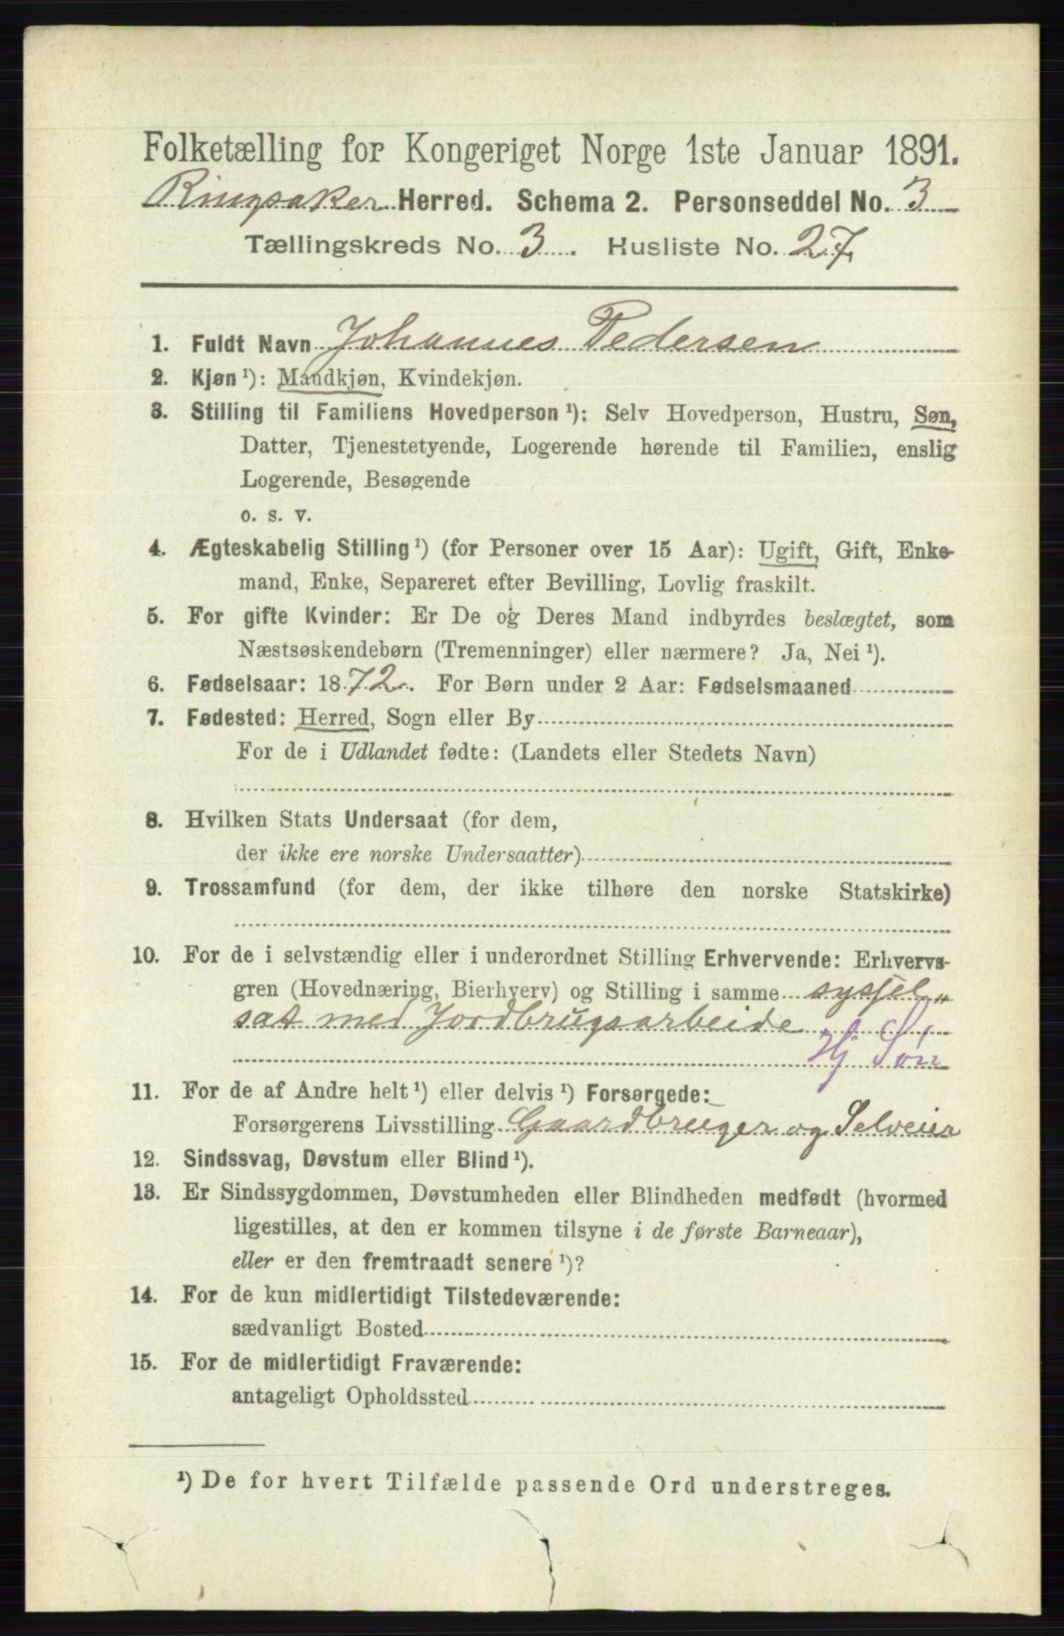 Folketælling for Kongeriget Norge 1ste Januar 1891.
Ringsaker Herred. Schema 2. Personseddel No. 3
Tællingskreds No. 3. Husliste No. 27.
1. Fuldt Navn Johannes Pedersen
2. Kjøn ¹): Mandkjøn, Kvindekjøn.
3. Stilling til Familiens Hovedperson ¹): Selv Hovedperson, Hustru, Søn,
Datter, Tjenestetyende, Logerende hørende til Familien, enslig
Logerende, Besøgende
o. s. v.
4. Ægteskabelig Stilling ¹) (for Personer over 15 Aar): Ugift, Gift, Enke-
mand, Enke, Separeret efter Bevilling, Lovlig fraskilt.
5. For gifte Kvinder: Er De og Deres Mand indbyrdes beslægtet, som
Næstsøskendebørn (Tremenninger) eller nærmere? Ja, Nei ¹).
6. Fødselsaar: 1872. For Børn under 2 Aar: Fødselsmaaned
7. Fødested: Herred, Sogn eller By
For de i Udlandet fødte: (Landets eller Stedets Navn)
8. Hvilken Stats Undersaat (for dem,
der ikke ere norske Undersaatter)
9. Trossamfund (for dem, der ikke tilhøre den norske Statskirke)
10. For de i selvstændig eller i underordnet Stilling Erhvervende: Erhvervs-
gren (Hovednæring, Bierhverv) og Stilling i samme sysjel„
sat med Jordbrugsarbeide
Hj Søn
11. For de af Andre helt ¹) eller delvis ¹) Forsørgede:
Forsørgerens Livsstilling Gaardbruger og Selveier
12. Sindssvag, Døvstum eller Blind ¹).
13. Er Sindssygdommen, Døvstumheden eller Blindheden medfødt (hvormed
ligestilles, at den er kommen tilsyne i de første Barneaar),
eller er den fremtraadt senere ¹)?
14. For de kun midlertidigt Tilstedeværende:
sædvanligt Bosted
15. For de midlertidigt Fraværende:
antageligt Opholdssted
¹) De for hvert Tilfælde passende Ord understreges.